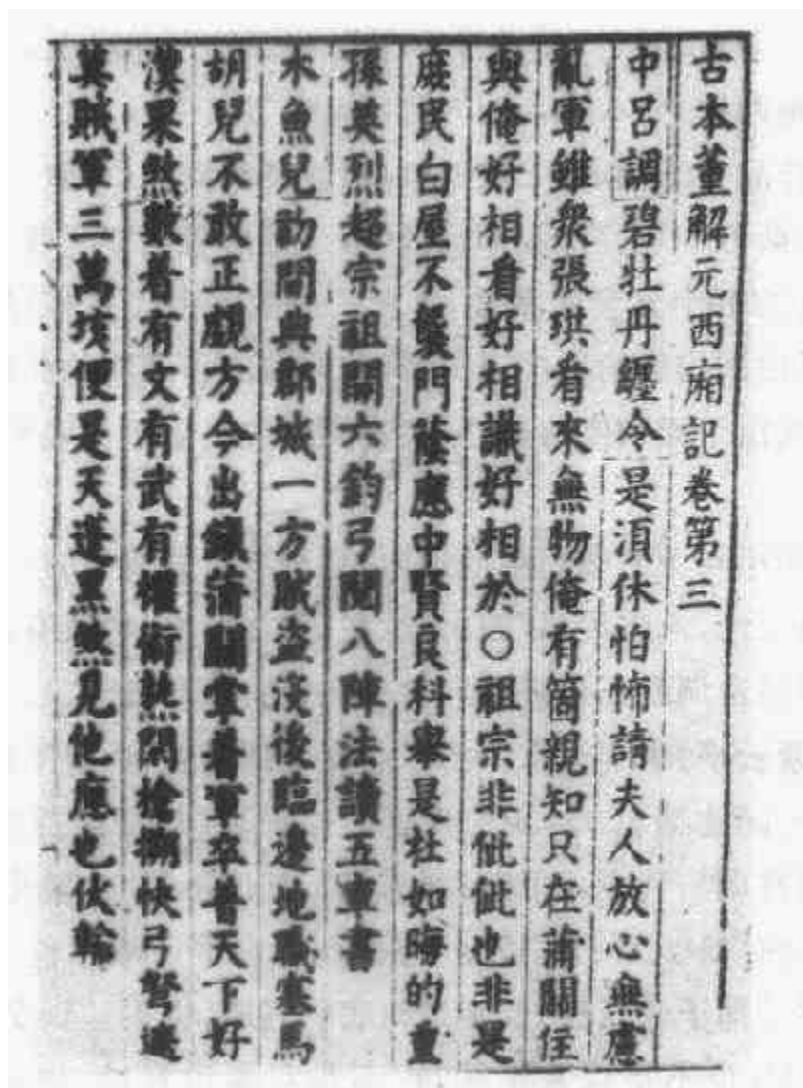 古本董解元西廂記卷第三
中呂調碧牡丹纏令是湏休怕怖請夫人放心無慮
亂軍雖衆張珙看來無物俺有箇親知只在蒲關住
與俺好相看好相識好相於○祖宗非仳仳也非是
庶民白屋不襲門蔭應中賢良科舉是杜如晦的重
孫英烈超宗祖開六鈞弓閱八陣法讀五車書
木魚兒初間典郡城一方賊盜沒後臨邊地職塞馬
胡兒不敢正覷方今出鎮蒲關掌着軍卒普天下好
漢果煞數着有文有武有權術熟閑槍搠快弓弩遮
莫賊軍三萬垓便是天蓬黑煞見他應也伏輸